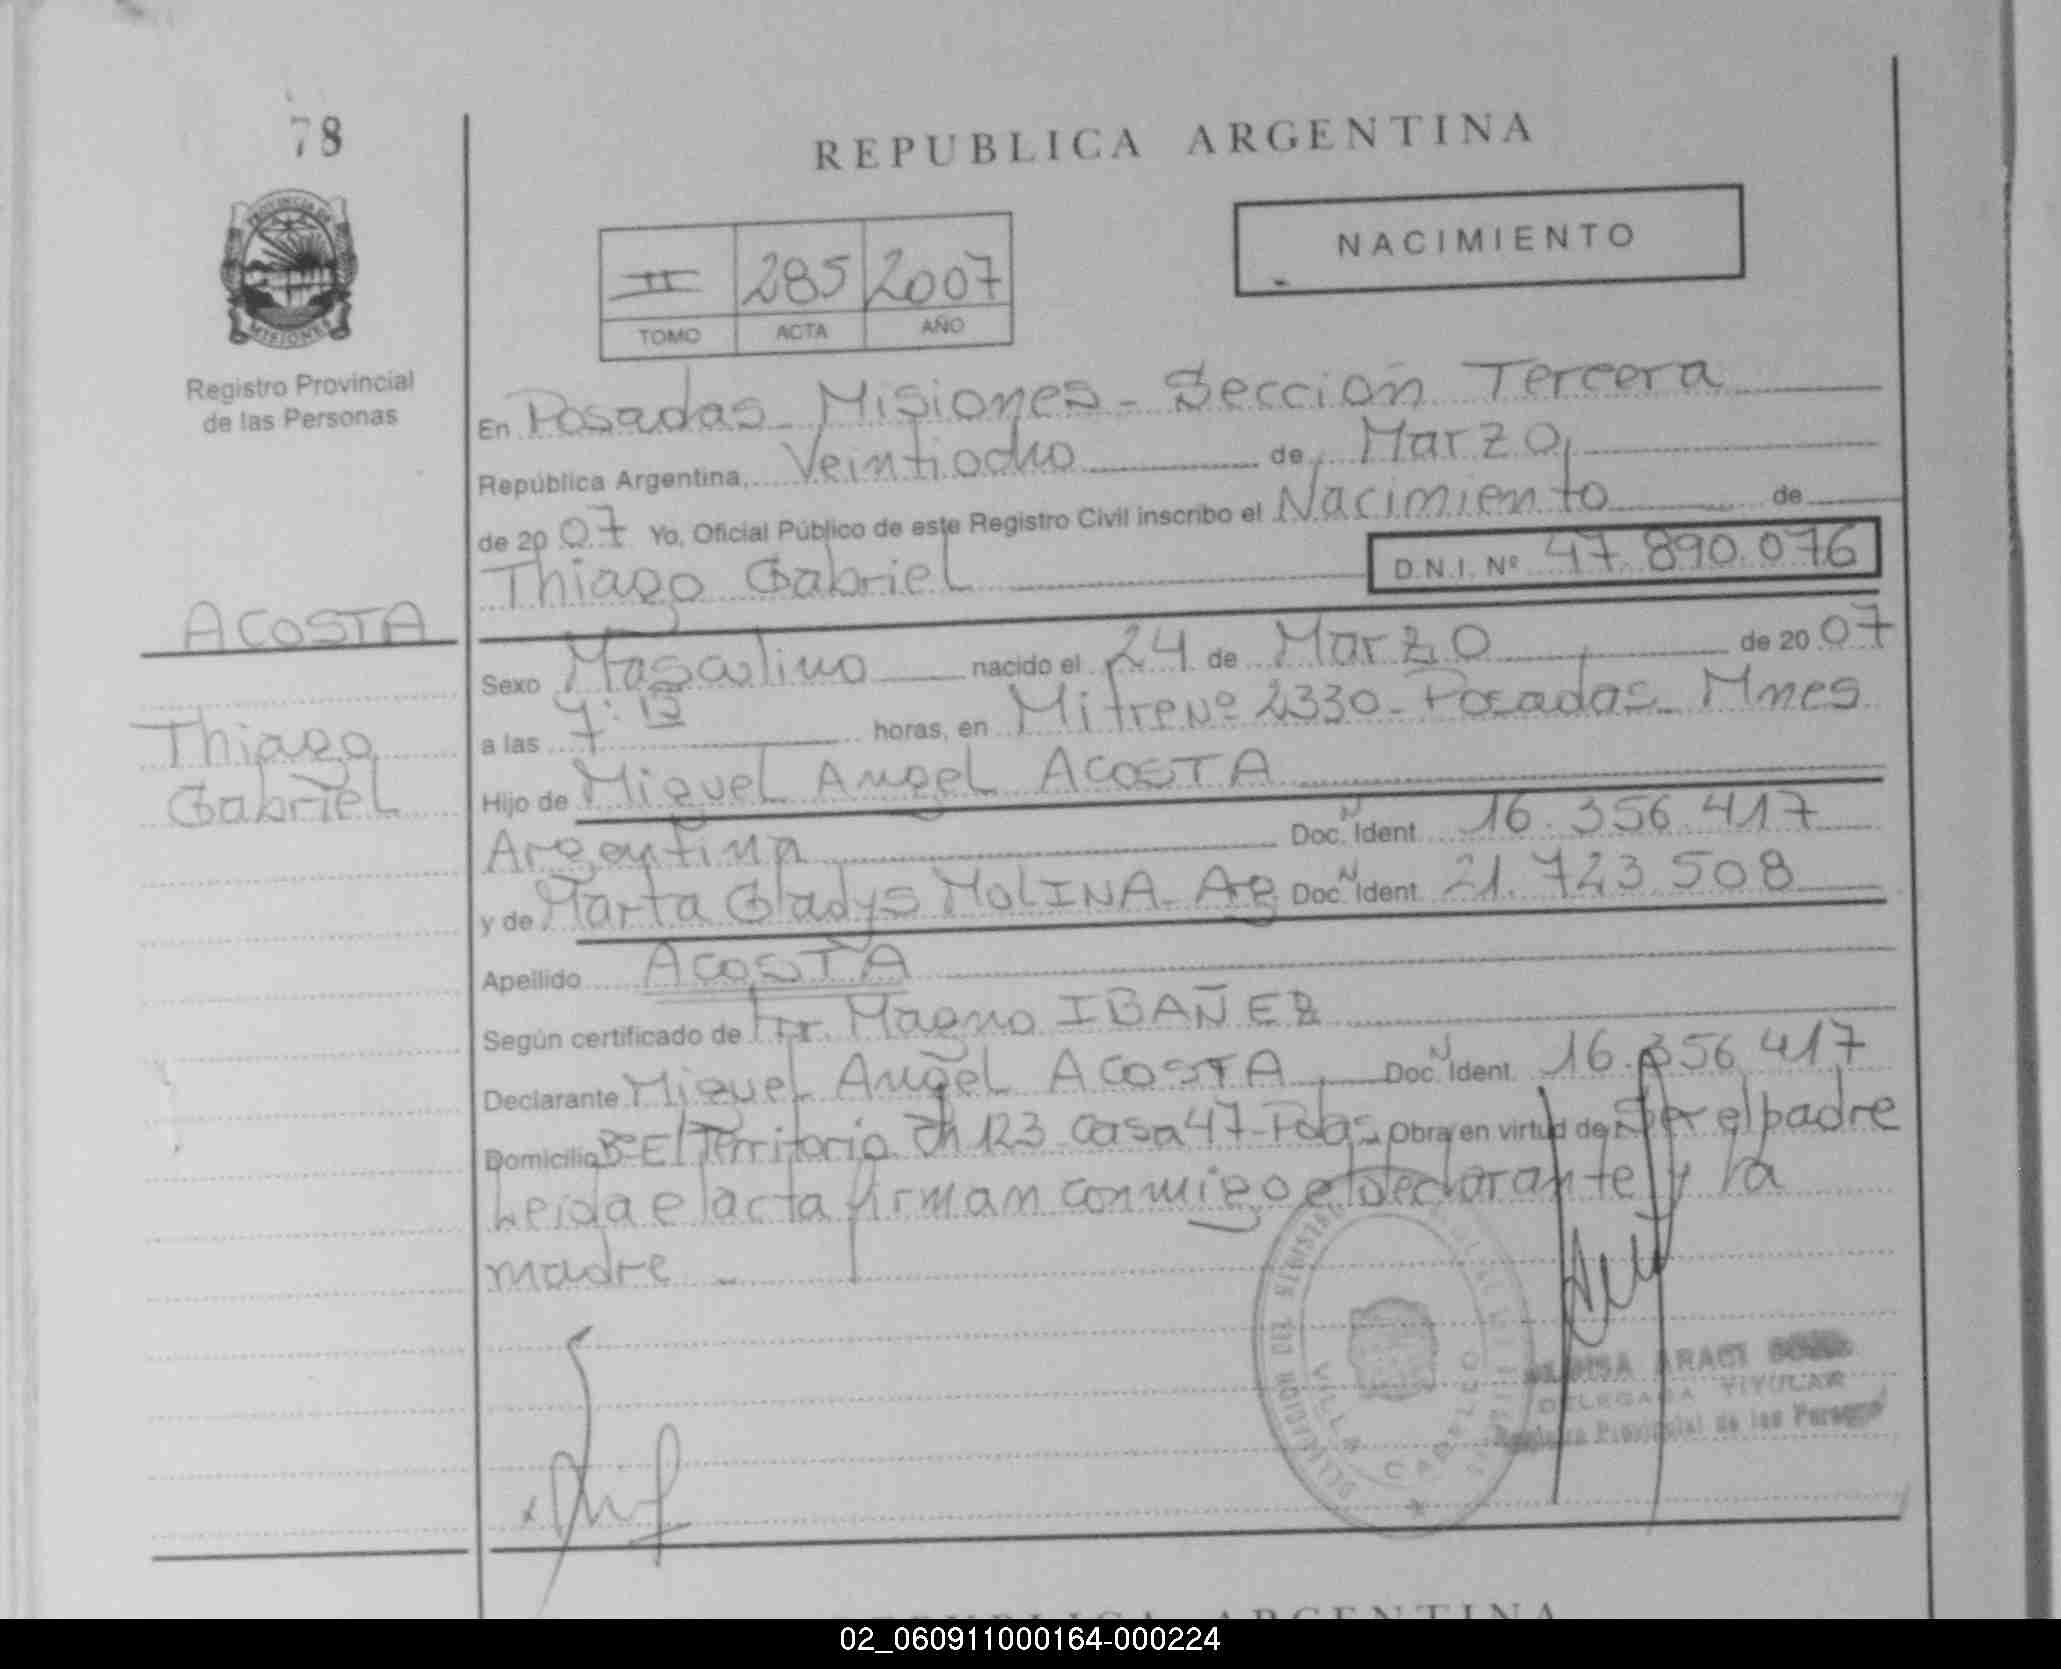 78
REPUBLICA ARGENTINA
PROVINCIA DE
MISIONES
Registro Provincial
de las Personas
II 285 2007
TOMO ACTA AÑO
NACIMIENTO
En Posadas Misiones - Seccion Tercera
República Argentina, Veintiocho de Marzo,
de 2007 Yo, Oficial Público de este Registro Civil inscribo el Nacimiento de
Thiago Gabriel D.N.I. Nº 47.890.076
ACOSTA
Thiago
Gabriel
Sexo Masculino nacido el 24 de Marzo de 2007
a las horas, en Mitre Nº 2330 - Posadas - Mnes
Hijo de Miguel Angel ACOSTA
Argentina Doc. N Ident 16.356.417
y de Marta Gladys MOLINA - Doc. N Ident 21.723.508
Apellido ACOSTA
Según certificado de Magno IBAÑEZ
Declarante Miguel Angel ACOSTA Doc. N Ident. 16.356.417
Domicilio Bº El Territorio Ch 123 Casa 47 - Pdas. Obra en virtud de Ser el padre
Leida el acta firman conmigo el declarante y la
madre -
DELEGACION DEL REGISTRO
VILLA CABELLO
ARACI
DELEGADA TITULAR
Registro Provincial de las Personas
REPUBLICA ARGENTINA
02_060911000164-000224